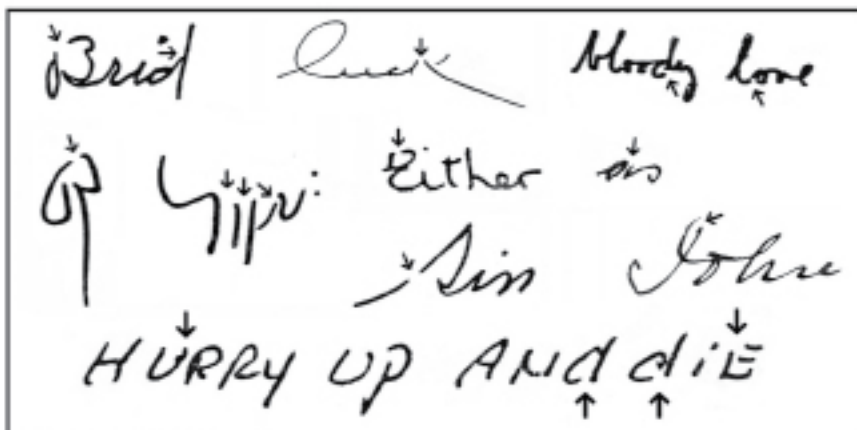 Brid luck bloody love
Either as
Sin John
HURRY UP ANd diE